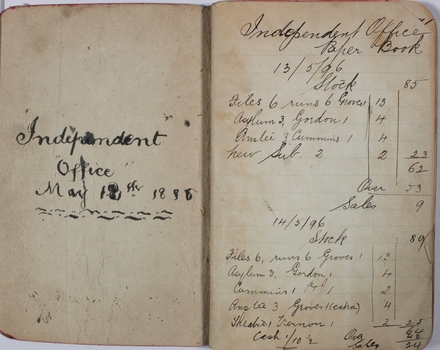 Independent
Office
May 13th 1896
Independent Office
Paper Book
13/5/96
Stock 85
Files 6 runs 6 Groves 1 13
Asylum 3, Gordon 1 4
Anstie 3 Cummins 1 4
new Sub. 2 2 23
62
Over 53
Sales 9
14/5/96
Stock 89
Files 6, runs 6 Groves 1 13
Asylum 3, Gordon 1 4
Cummins 1 2
Anstie 3 Groves 1 (extra) 4
Theatre 1 Vernon 1 2 25
Cash 1/10½ Over
Sales 24